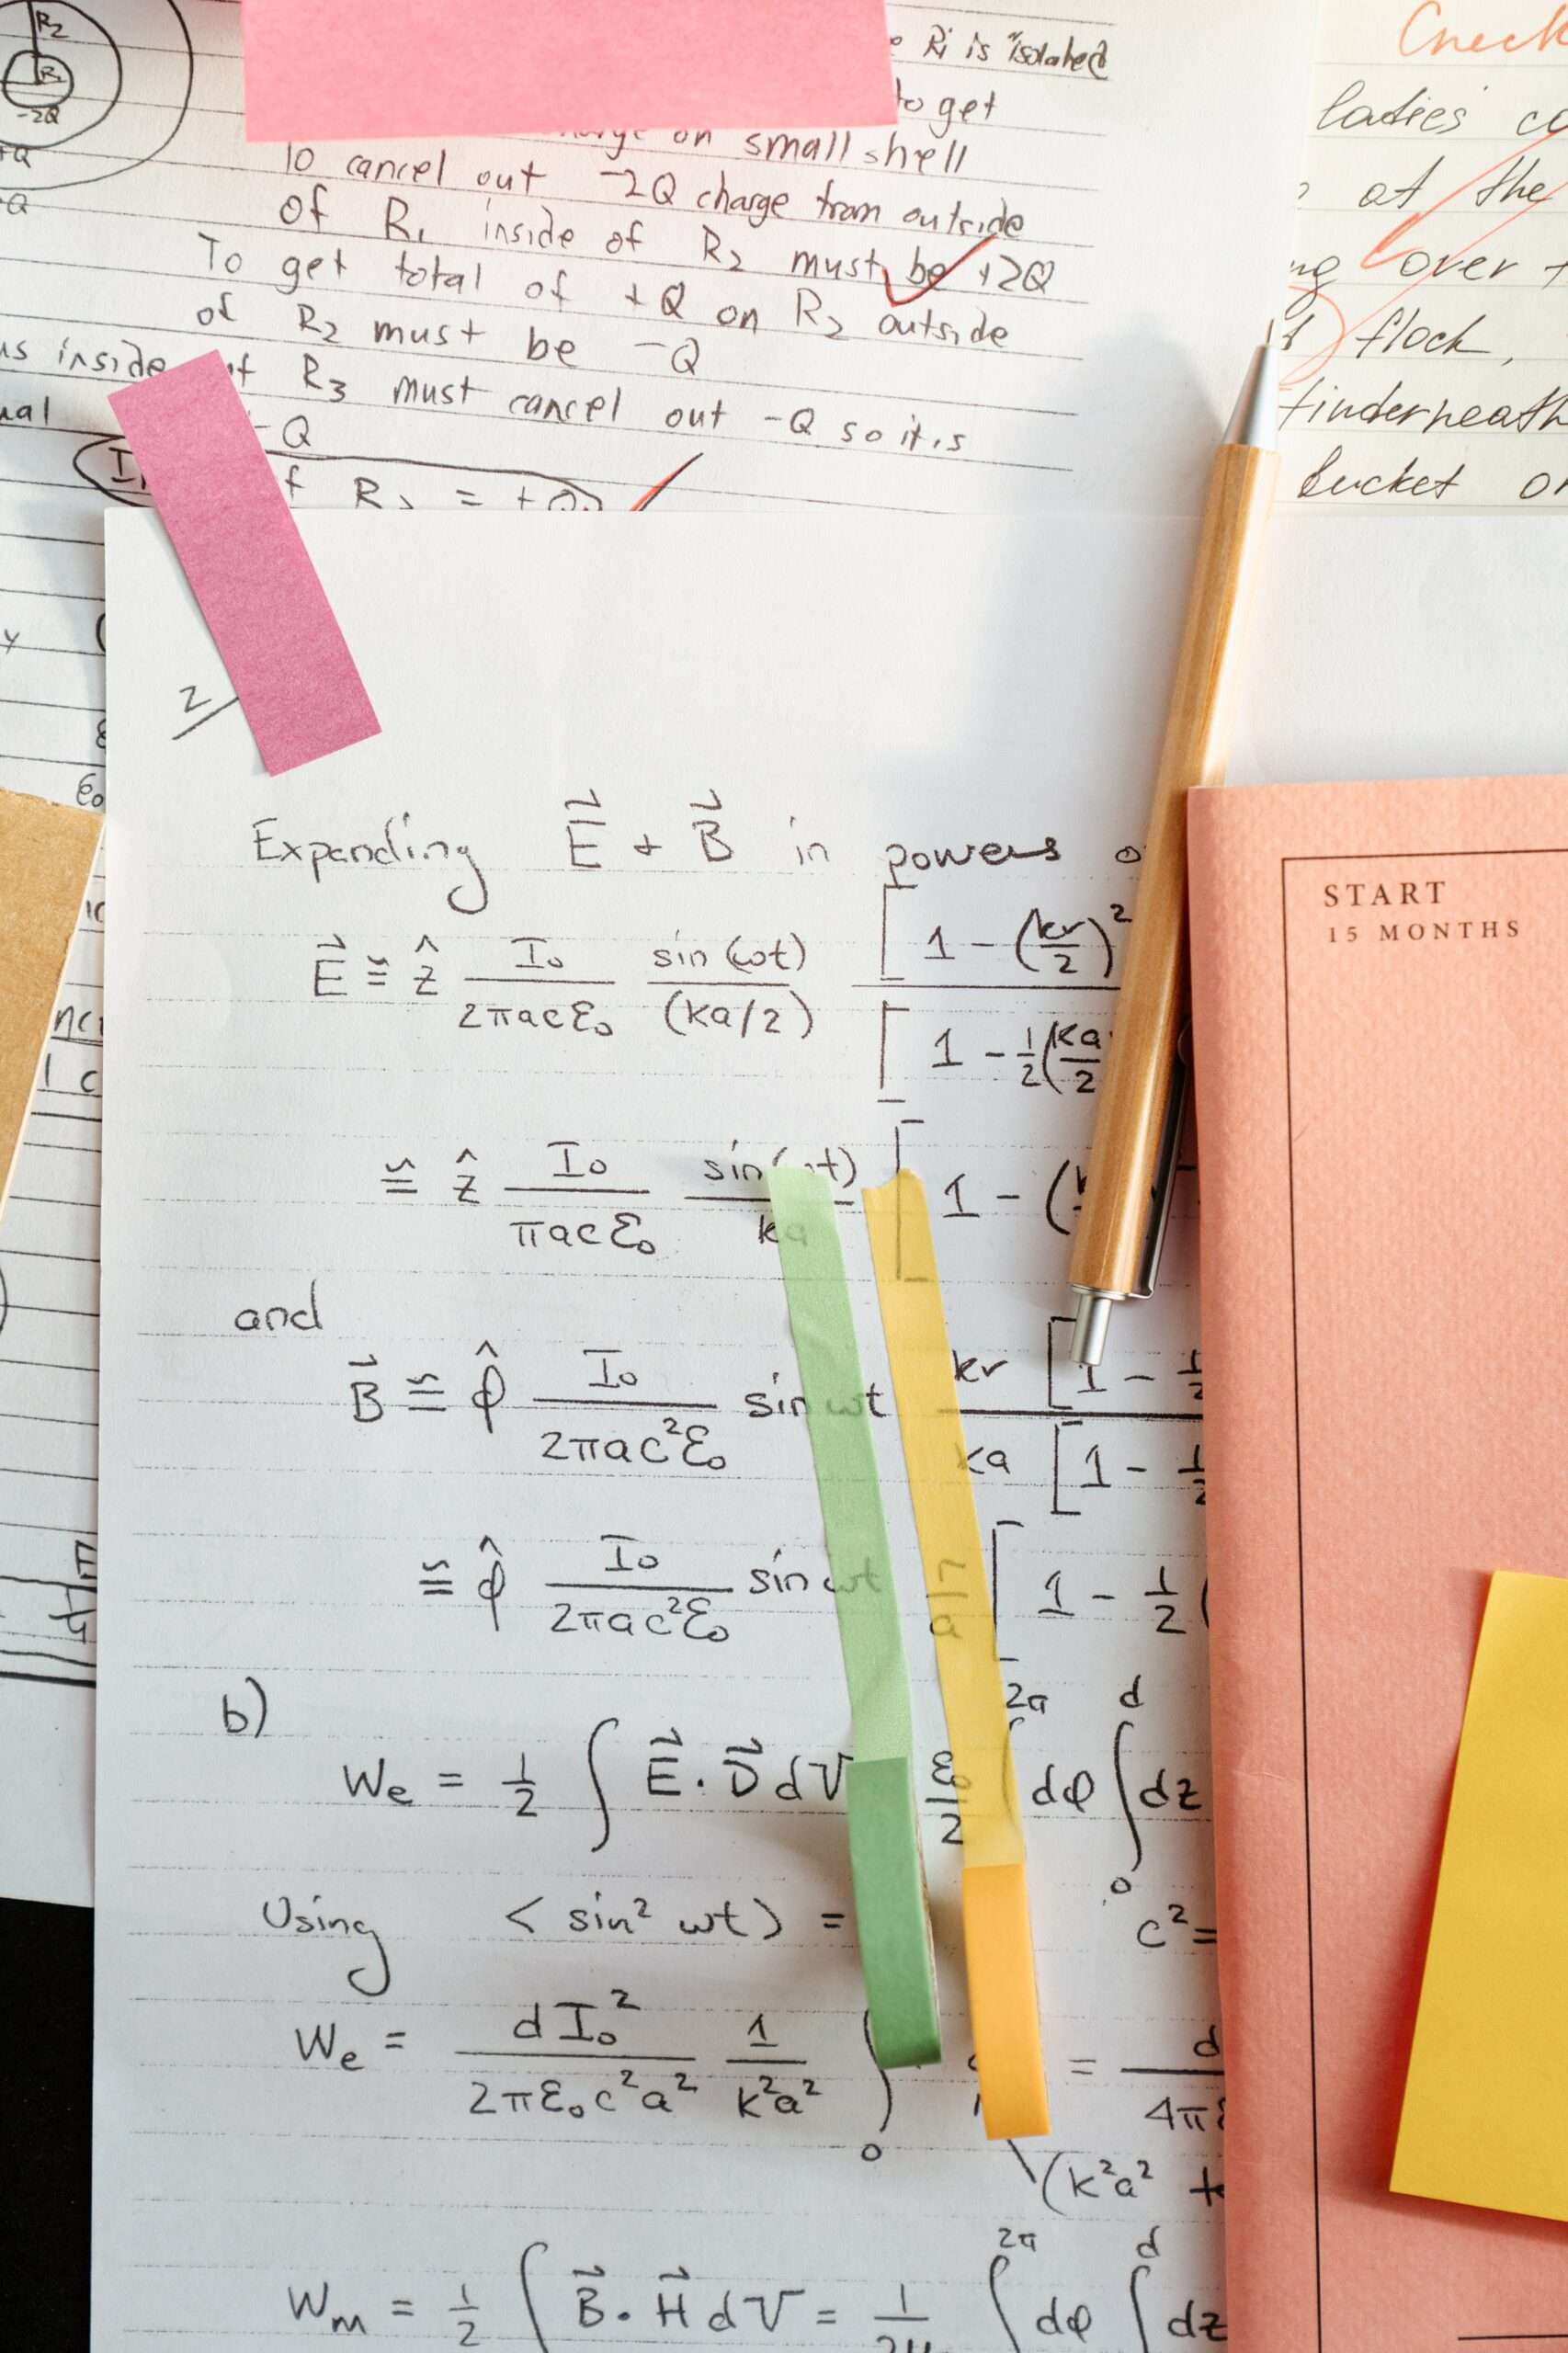 R₂
R₁
-2Q
+Q
-Q
Ri is "isolated
to get
on small shell
To cancel out -2Q charge from outside
of R₁ inside of R₂ must be +2Q
To get total of +Q on R₂ outside
of R₂ must be -Q
inside of R₃ must cancel out -Q so it is
-Q
R₃ = +Q
Check
ladies
at the
over
flock,
bucket
2
ε₀
Expanding E⃗ + B⃗ in powers
E⃗ ≅ ẑ I₀/(2πacε₀) sin(ωt)/(ka/2) [1 - (kr/2)²
[1 - 1/2(ka/2
≅ ẑ I₀/(πacε₀) sin(ωt)/ka [1 - (
and
B⃗ ≅ φ̂ I₀/(2πac²ε₀) sin ωt kr [1 - 1/2
ka [1 - 1/2
≅ φ̂ I₀/(2πac²ε₀) sin ωt r/a [1 - 1/2 (
b)
We = 1/2 ∫ E⃗ · D⃗ dV ε₀/2 ∫ 2π dφ ∫₀ᵈ dz
Using < sin² ωt> = c² =
We = dI₀²/(2πε₀c²a²) 1/(k²a²) ∫₀ = d/4π
(k²a² +
Wm = 1/2 ∫ B⃗ · H⃗ dV = 1/2μ ∫ 2π dφ ∫ d dz
START
15 MONTHS